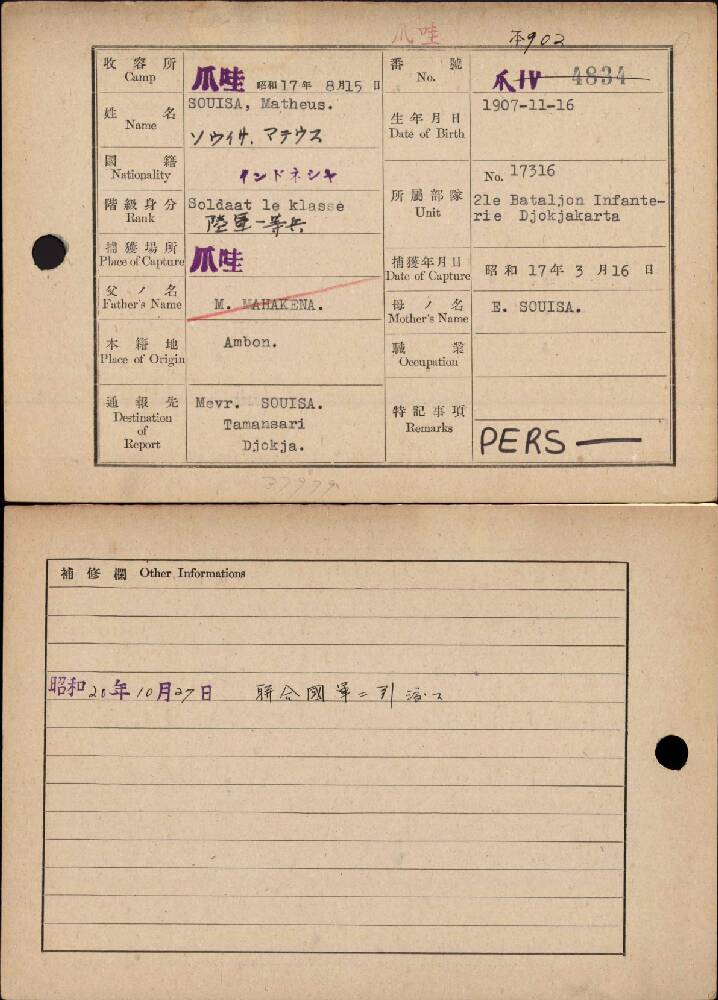 爪哇 本902
收容所 Camp 爪哇 昭和17年 8月15日
番號 No. 爪IV 4834
姓名 Name SOUISA, Matheus.
ソウイサ、マテウス
生年月日 Date of Birth 1907-11-16
國籍 Nationality インドネシヤ
階級身分 Rank Soldaat 1e klasse
陸軍一等兵
所屬部隊 Unit No. 17316
21e Bataljon Infante-
rie Djokjakarta
捕獲場所 Place of Capture 爪哇
捕獲年月日 Date of Capture 昭和 17年 3月16日
父ノ名 Father's Name M. MAHAKENA.
母ノ名 Mother's Name E. SOUISA.
本籍地 Place of Origin Ambon.
職業 Occupation
通報先 Destination of Report Mevr. SOUISA.
Tamansari
Djokja.
特記事項 Remarks PERS —
37979
補修欄 Other Informations
昭和20年10月27日 聯合國軍ニ引渡ス